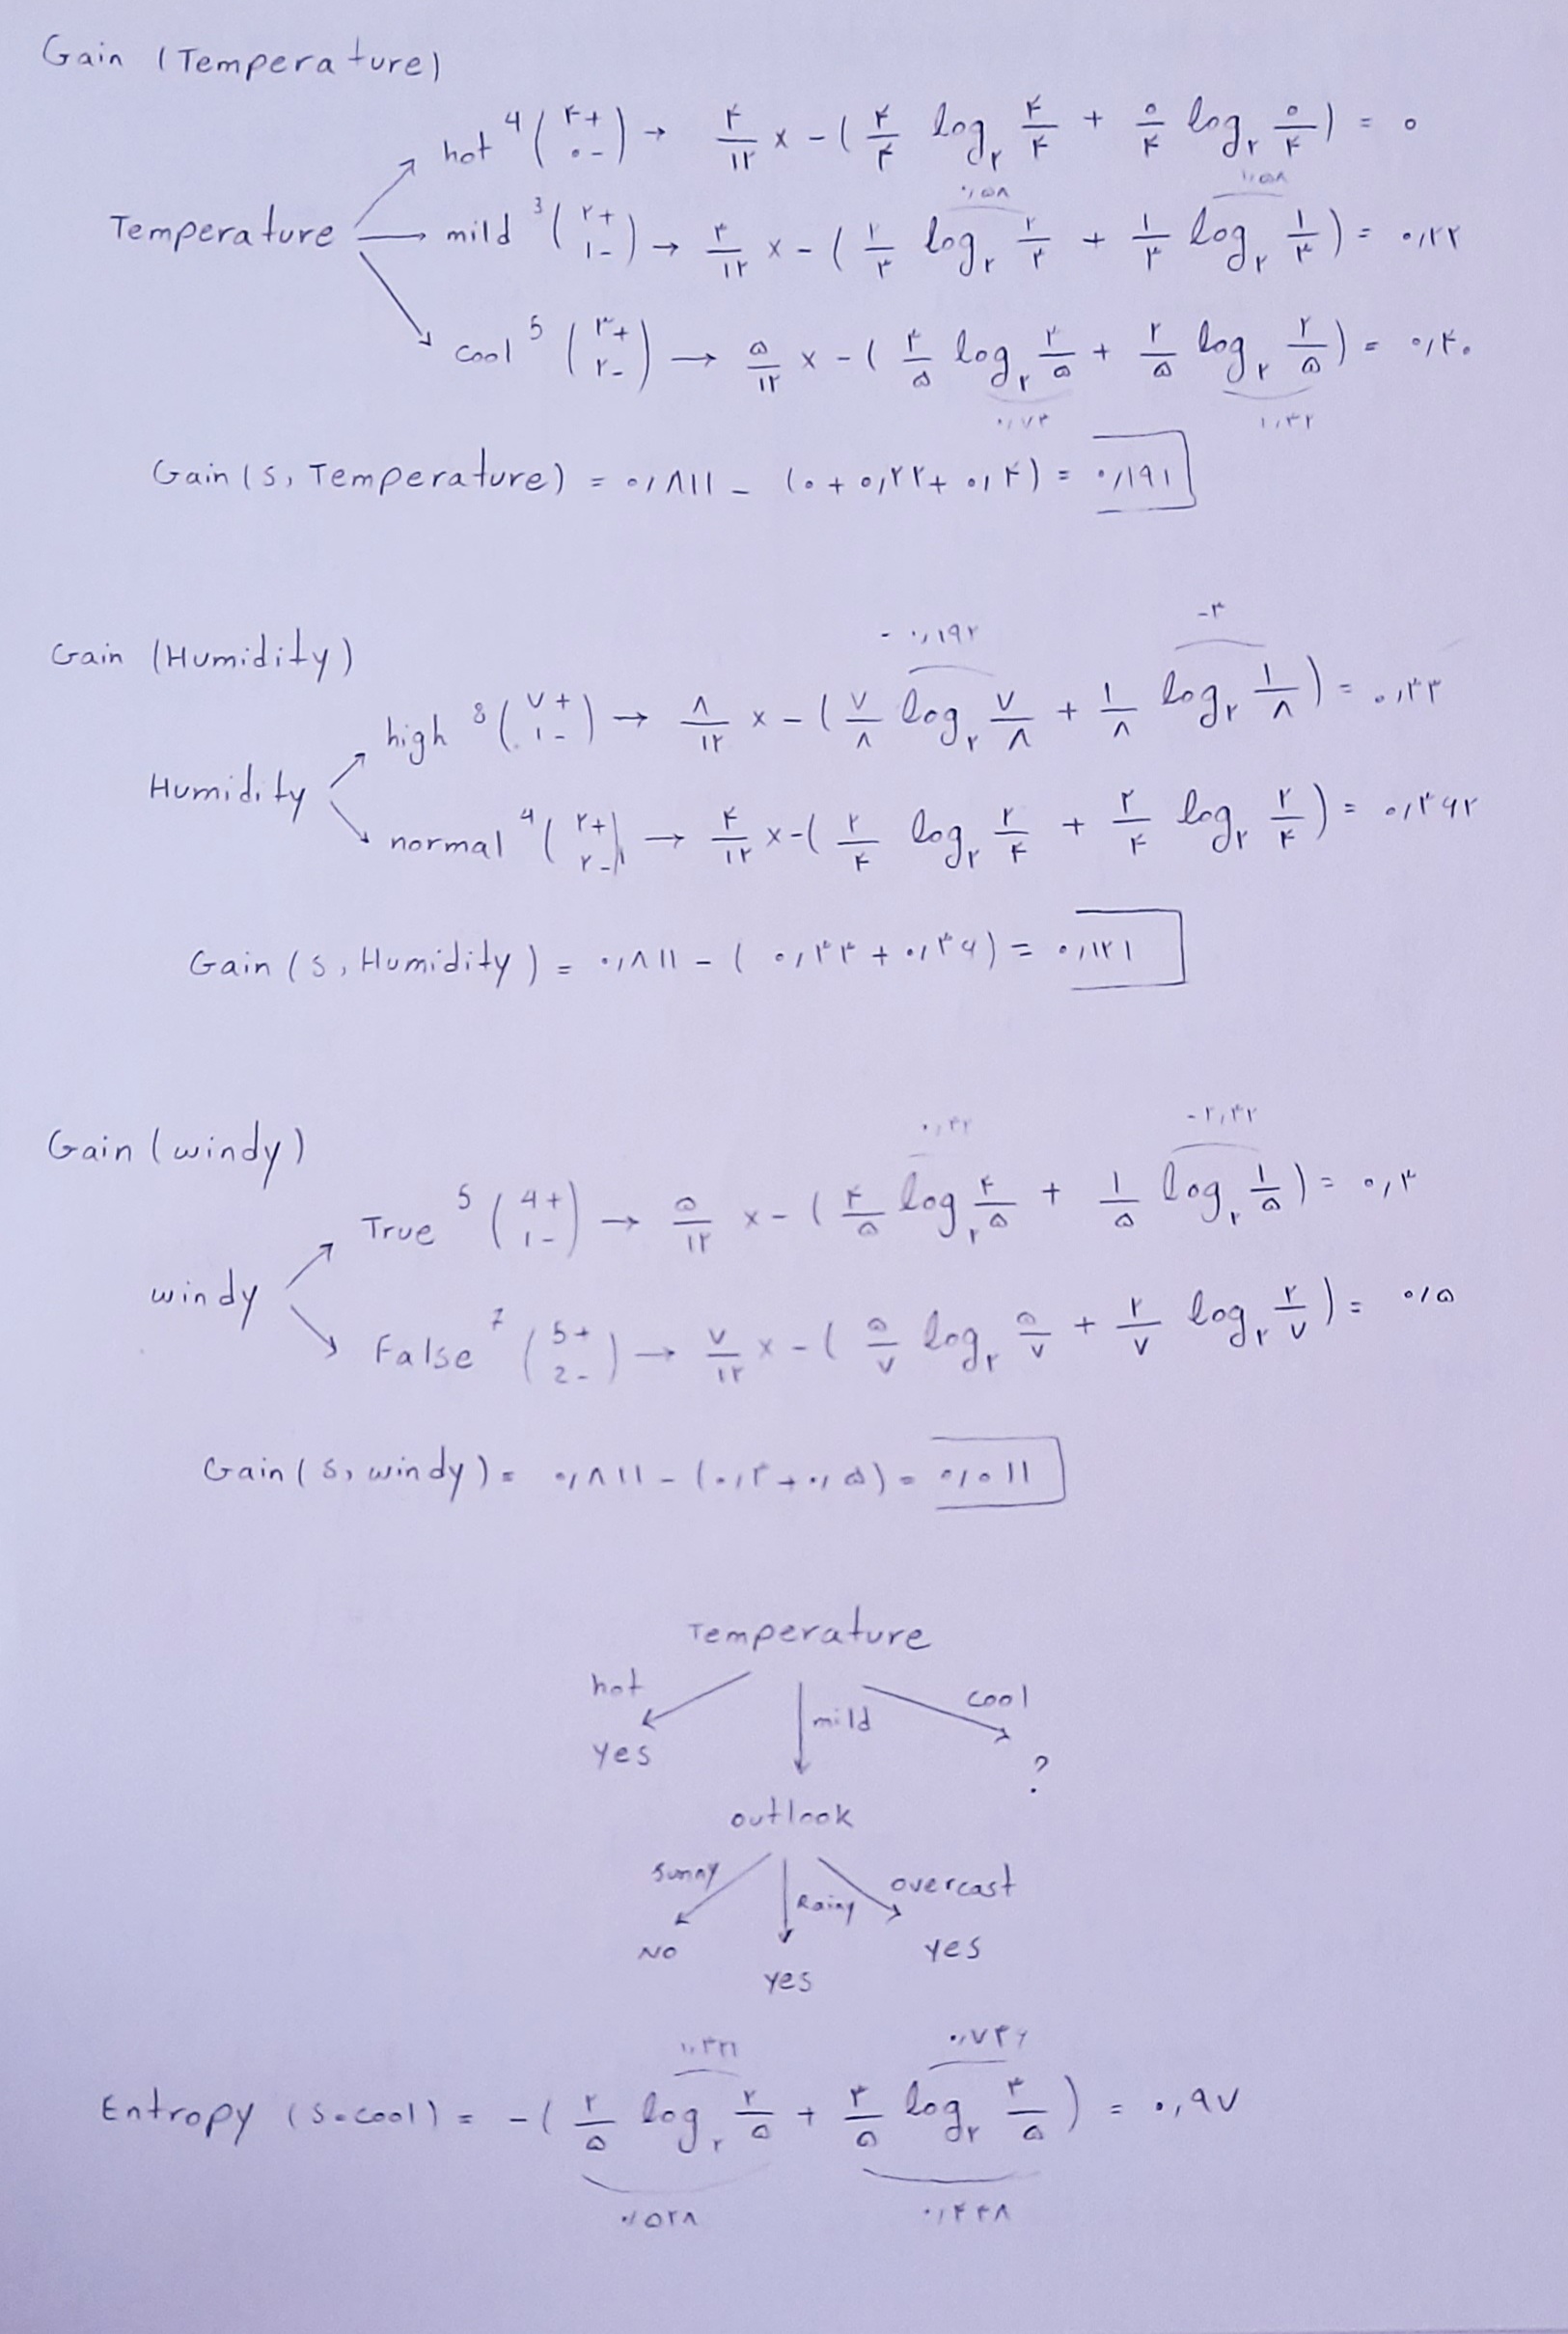 Gain (Temperature)
hot 4 (۴+ ۰-) → ۴/۱۲ × -(۴/۴ log۲ ۴/۴ + ۰/۴ log۲ ۰/۴) = ۰
۰,۵۸ ۱,۵۸
Temperature → mild 3 (۲+ ۱-) → ۳/۱۲ × -(۲/۳ log۲ ۲/۳ + ۱/۳ log۲ ۱/۳) = ۰,۲۲
cool 5 (۳+ ۲-) → ۵/۱۲ × -(۳/۵ log۲ ۳/۵ + ۲/۵ log۲ ۲/۵) = ۰,۴۰
۰,۷۳ ۱,۳۲
Gain(S, Temperature) = ۰,۸۱۱ - (۰ + ۰,۲۲ + ۰,۴) = ۰,۱۹۱
Gain (Humidity)
- ۰,۱۹۲ -۳
high 8 (۷+ ۱-) → ۸/۱۲ × -(۷/۸ log۲ ۷/۸ + ۱/۸ log۲ ۱/۸) = ۰,۳۳
Humidity
normal 4 (۲+ ۲-) → ۴/۱۲ × -(۲/۴ log۲ ۲/۴ + ۲/۴ log۲ ۲/۴) = ۰,۳۶۲
Gain (S, Humidity) = ۰,۸۱۱ - (۰,۳۳ + ۰,۳۶) = ۰,۱۲۱
Gain (windy)
۰,۳۲ -۲,۳۲
True 5 (4+ ۱-) → ۵/۱۲ × -(۴/۵ log۲ ۴/۵ + ۱/۵ log۲ ۱/۵) = ۰,۳
windy
False 7 (5+ 2-) → ۷/۱۲ × -(۵/۷ log۲ ۵/۷ + ۲/۷ log۲ ۲/۷) = ۰,۵
Gain(S, windy) = ۰,۸۱۱ - (۰,۳ + ۰,۵) = ۰,۰۱۱
Temperature
hot mild cool
Yes ?
outlook
sunny Rainy overcast
NO yes yes
۰,۷۳۶
Entropy (S.cool) = -(۲/۵ log۲ ۲/۵ + ۳/۵ log۲ ۳/۵) = ۰,۹۷
۰,۵۲۸ ۰,۴۴۸